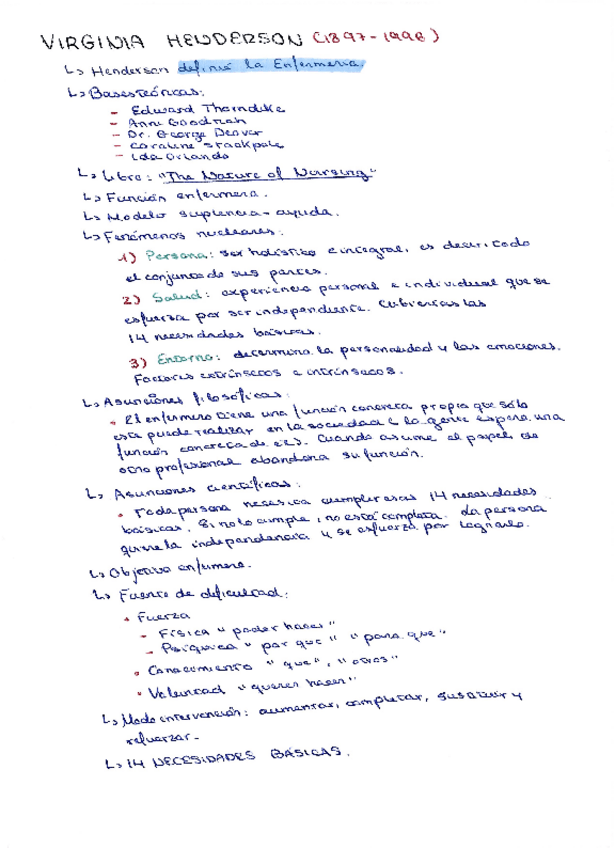 VIRGINIA HENDERSON (1897-1996)
↳ Henderson definió la Enfermería.
↳ Bases teóricas:
- Edward Thorndike
- Anni Goodrich
- Dr. George Deaver
- Caroline Stackpole
- Ida Orlando
↳ Libro: "The Nature of Nursing"
↳ Función enfermera.
↳ Modelo suplencia-ayuda.
↳ Fenómenos nucleares:
1) Persona: ser holístico e integral, es decir, todo
el conjunto de sus partes.
2) Salud: experiencia personal e individual que se
esfuerza por ser independiente. Cubiertas las
14 necesidades básicas.
3) Entorno: determina la personalidad y las emociones.
Factores extrínsecos e intrínsecos.
↳ Asunciones filosóficas:
• El enfermero tiene una función concreta propia que sólo
esta puede realizar en la sociedad y la gente espera una
función concreta de ees. Cuando asume el papel de
otro profesional abandona su función.
↳ Asunciones científicas:
• Toda persona necesita cumplir esas 14 necesidades
básicas. Si no lo cumple, no está completa. La persona
quiere la independencia y se esfuerza por lograrlo.
↳ Objetivo enfermero.
↳ Fuente de dificultad:
• Fuerza
- Física "poder hacer"
- Psíquica "por que" "para que"
• Conocimiento "que", "otros"
• Voluntad "querer hacer"
↳ Modo intervención: aumentar, completar, sustituir y
reforzar.
↳ 14 NECESIDADES BÁSICAS.